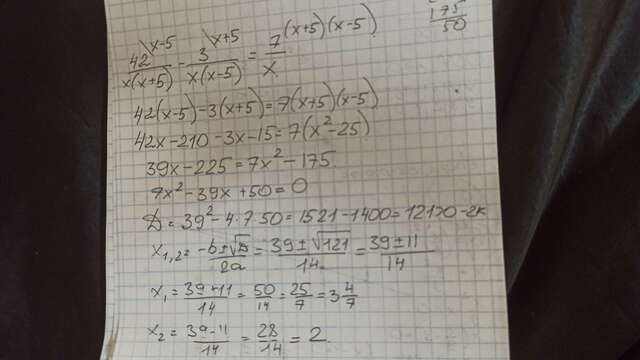 175/50
42\x-5/x(x+5) - 3\x+5/x(x-5) = 7\(x+5)(x-5)/x
42(x-5)-3(x+5)=7(x+5)(x-5)
42x-210-3x-15=7(x²-25)
39x-225=7x²-175
7x²-39x+50=0
D=39²-4·7·50=1521-1400=121>0-2к
x₁,₂=-b±√D/2a=39±√121/14=39±11/14
x₁=39+11/14=50/14=25/7=3 4/7
x₂=39-11/14=28/14=2